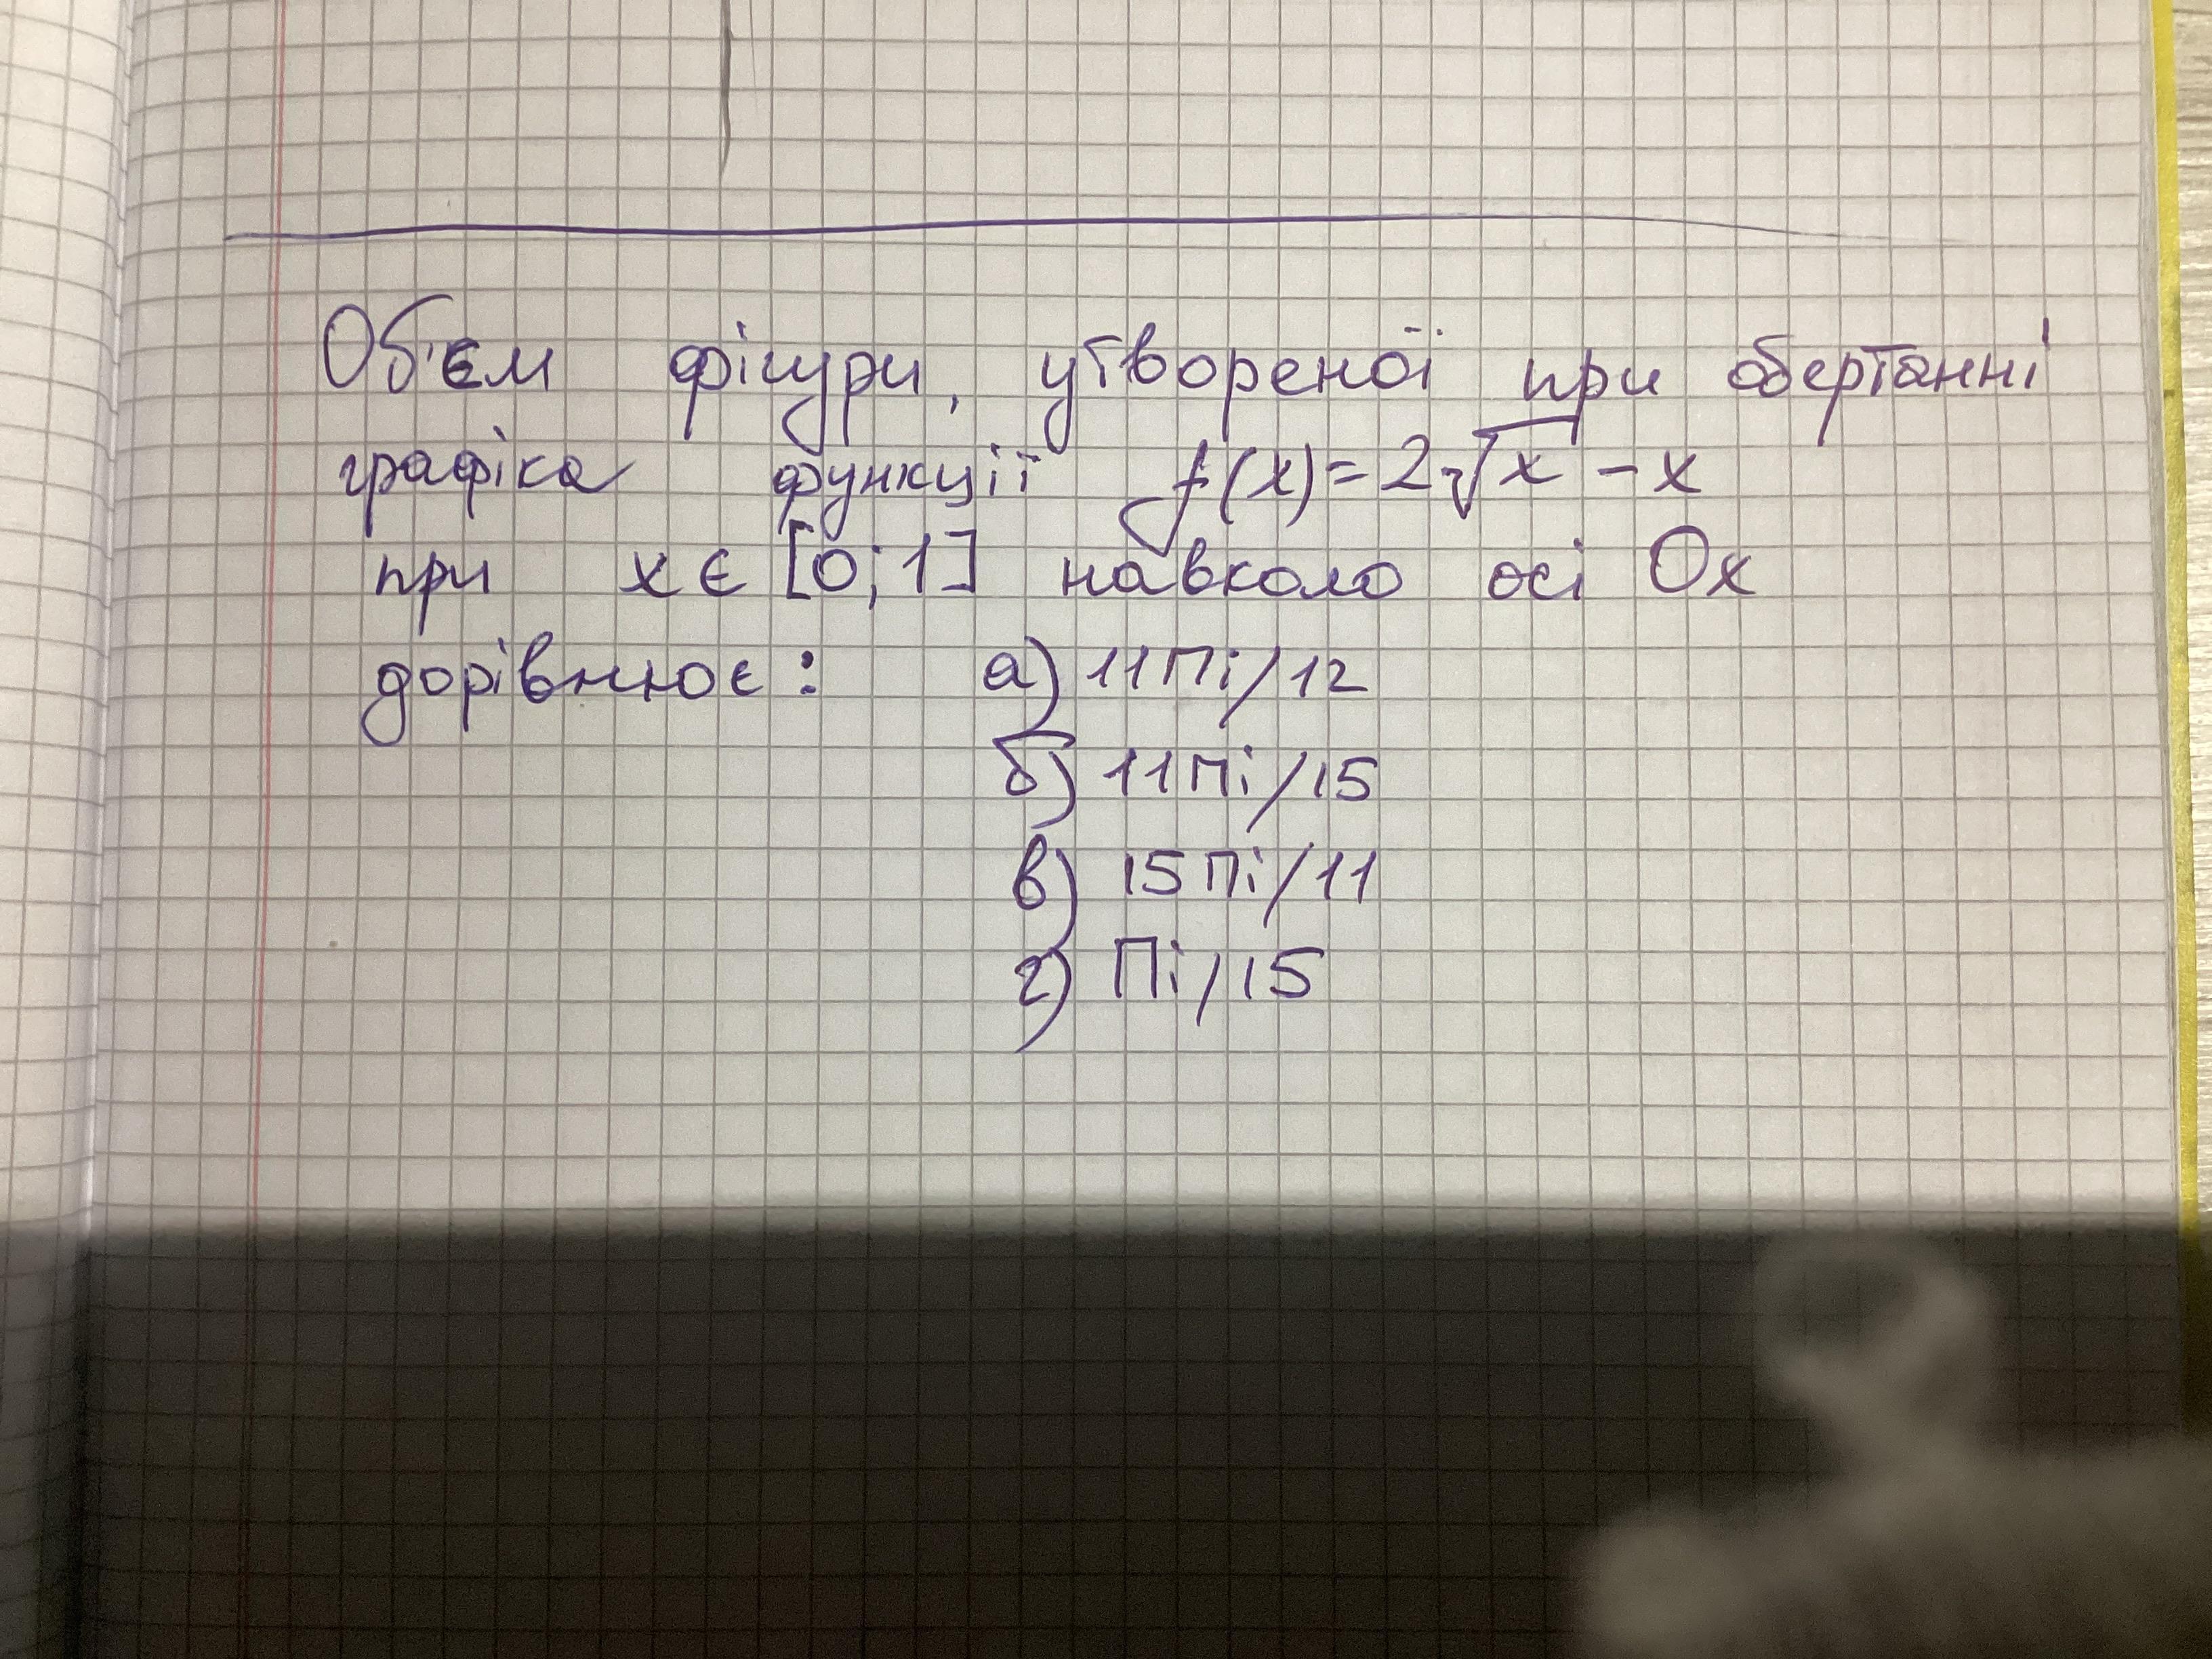 Об'єм фігури, утвореної при обертанні
графіка функції f(x)=2√x - x
при x є [0;1] навколо осі Ox
дорівнює: а) 11Пі/12
б) 11Пі/15
в) 15Пі/11
г) Пі/15